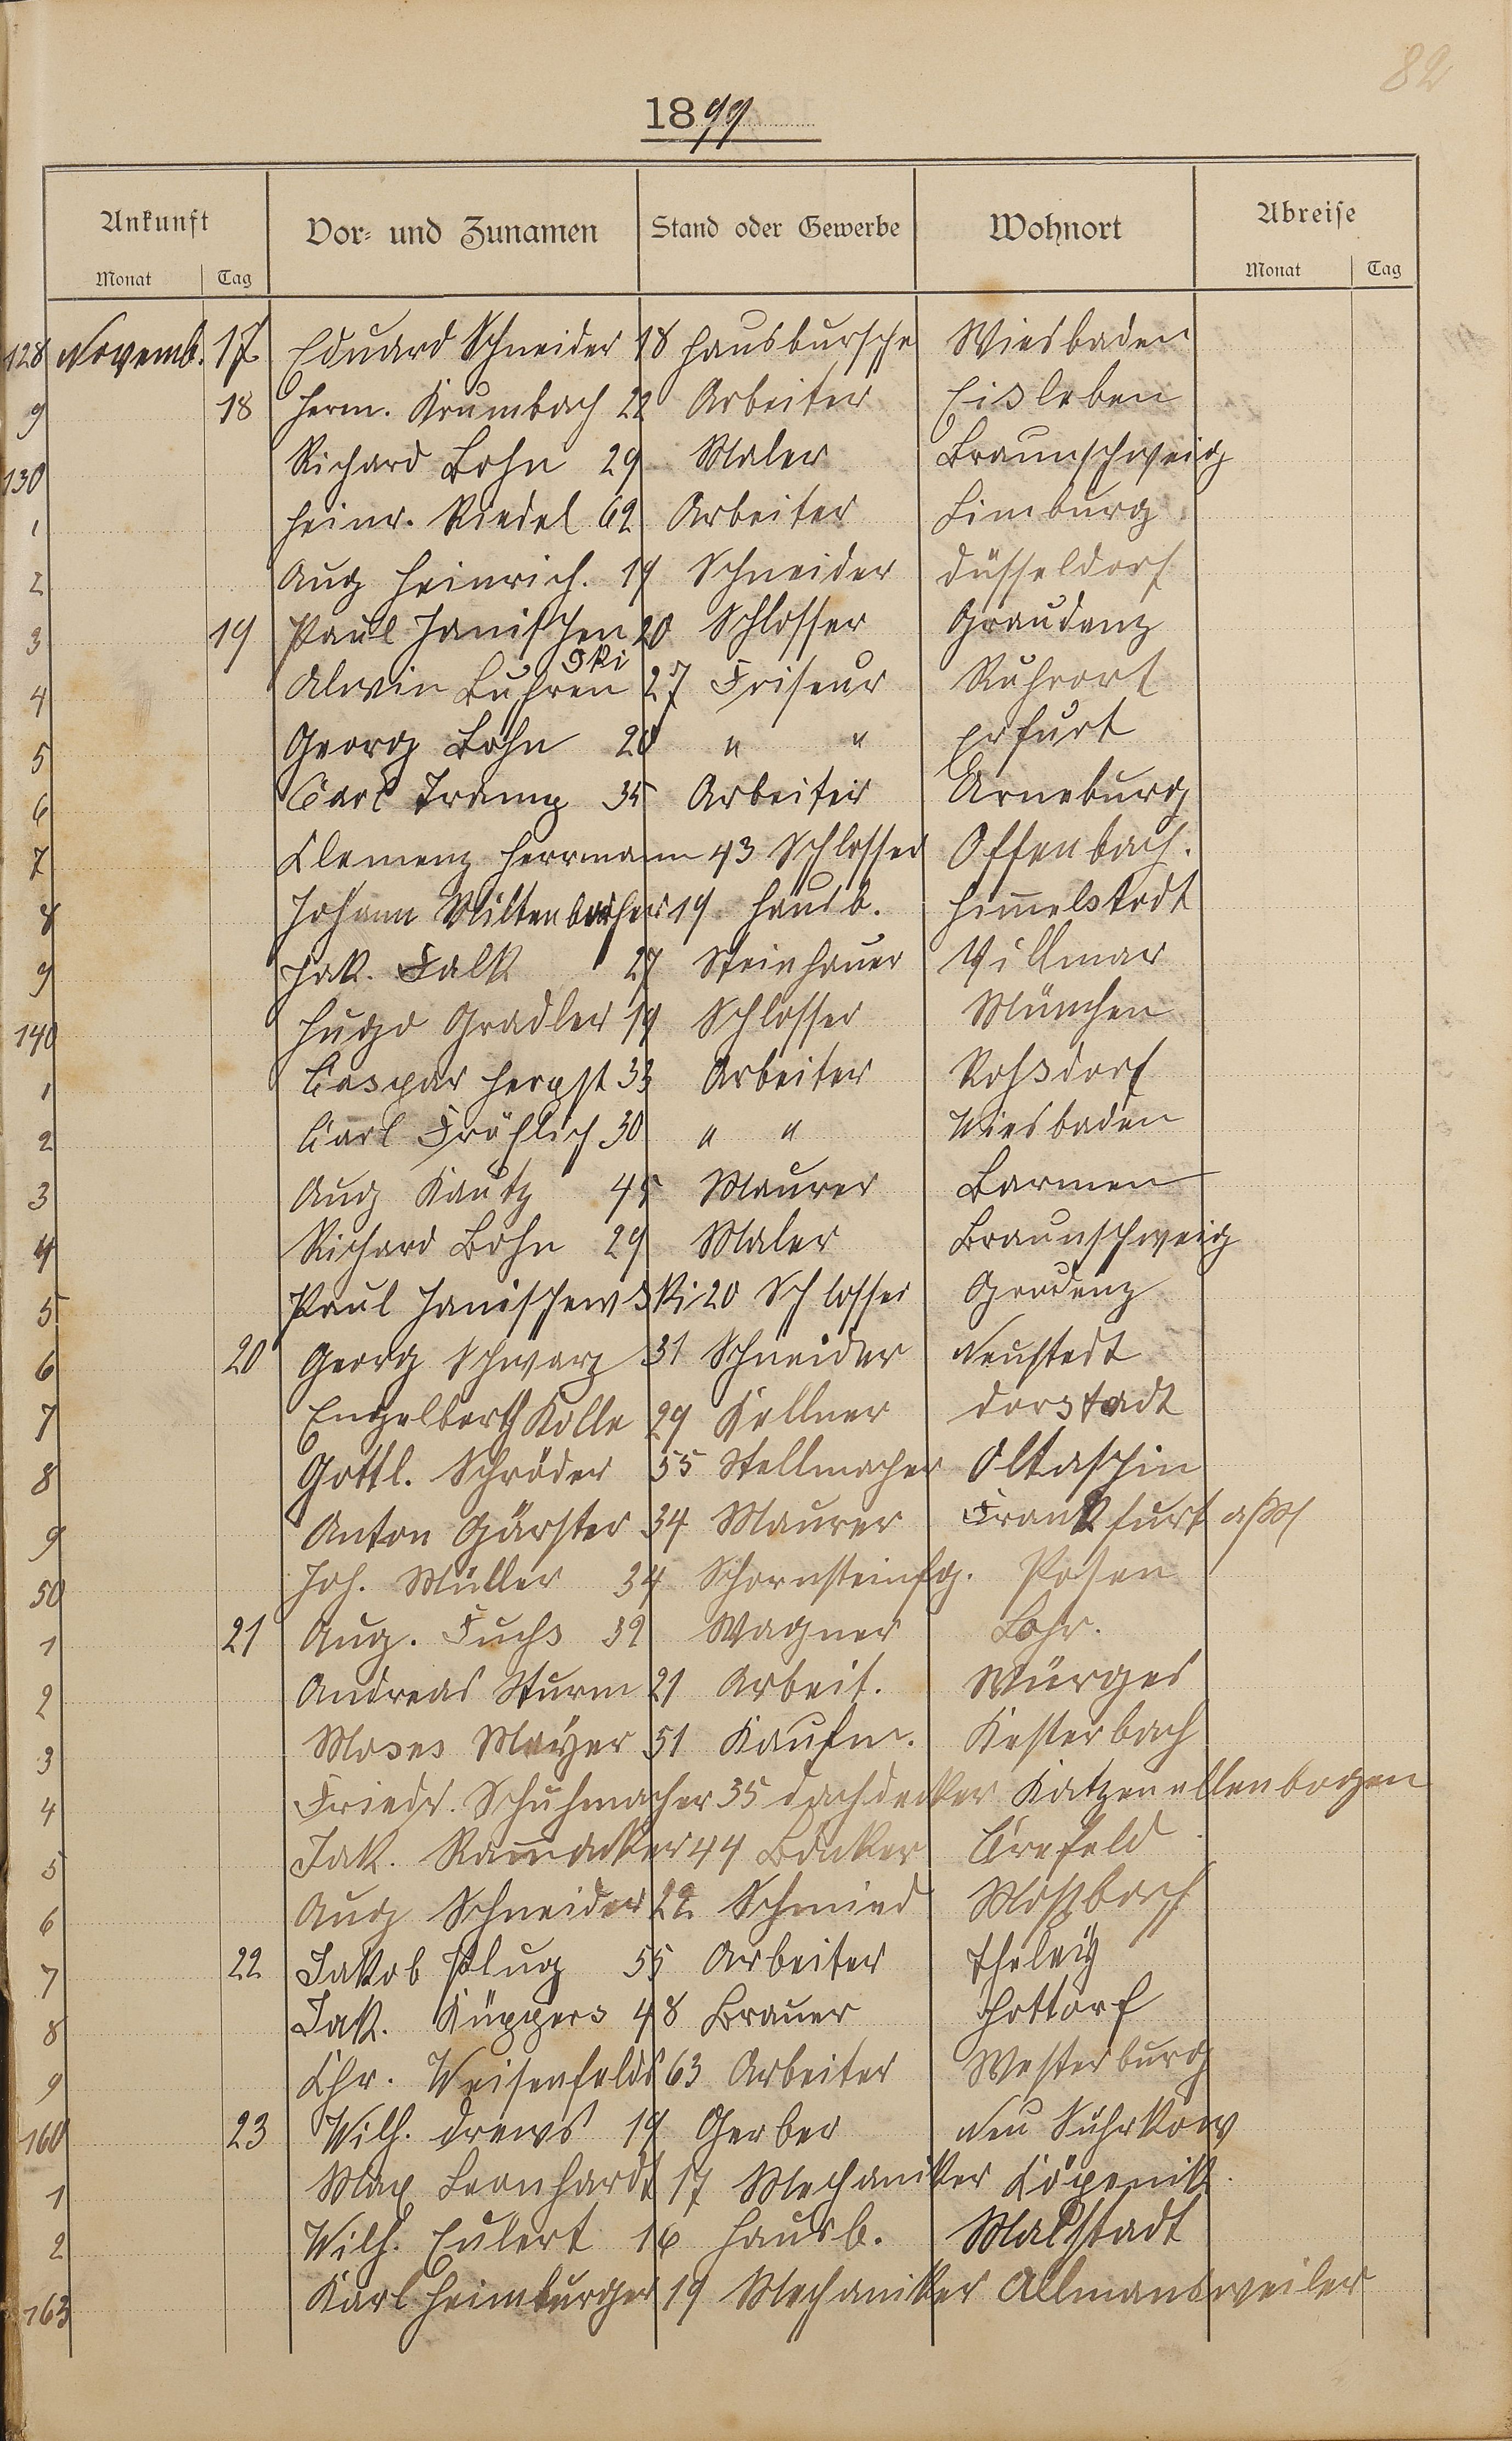 82
1899
Ankunft Vor- und Zunamen Stand oder Gewerbe Wohnort Abreise
Monat Tag Monat Tag
128 Novemb. 17 Eduard Schneider 18 Hausbursche Wiesbaden
9 18 Herm. Krumbach 22 Arbeiter Eisleben
130 Richard Bohn 29 Maler Braunschweig
1 Heinr. Riedel 62 Arbeiter Limburg
2 Aug Heinrich. 19 Schneider Düsseldorf
3 19 Paul Janischen 20 Schlosser Graudenz
ski
4 Alwin Buhren 27 Friseur Ruhrort
5 Georg Bohn 20 " " Erfurt
6 Carl Tramp 35 Arbeiter Arneburg
7 Clemenz Herrmann 43 Schlosser Offenbach.
8 Johann Miltenberger 19 Hausb. Him̅elstadt
9 Jak. Falk 27 Steinhauer Villmar
140 Hugo Gradler 19 Schlosser München
1 Caspar Hergst 33 Arbeiter Roßdorf
2 Carl Fröhlich 30 " " Wiesbaden
3 Aug Kautz 45 Maurer Barmen
4 Richard Bohn 29 Maler Braunschweig
5 Paul Janischewski 20 Schlosser Grudenz
6 20 Georg Schwarz 31 Schneider Neustadt
7 Engelberth Kolle 29 Kellner Dorstadt
8 Gottl. Schröder 55 Stellmacher Altaschin
9 Anton Gärster 34 Maurer Frankfurt a/M
50 Joh. Müller 34 Schornsteinfg. Posen
1 21 Aug. Fuchs 39 Wagner Lohr.
2 Andreas Sturm 21 Arbeit. Würges
3 Moses Mayer 51 Kaufm. Kesterbach
4 Friedr. Schuhmacher 35 Dachdecker Katzenellenbogen
5 Jak. Ram̅acker 44 Bäcker Crefeld
6 Aug Schneider 22 Schmied
7 22 Jakob Plug 55 Arbeiter Theley
8 Jak. Küppers 48 Brauer Hottorf
9 Chr. Weisenfelds 63 Arbeiter Westerburg
160 23 Wilh. Drews 19 Gerber Neu Sührkow
1 Max Leonhardt 17 Mechaniker Köpenik.
2 Wilh. Eulert 16 Hausb. Malstadt
163 Karl Heimburger 19 Mechaniker Allmansweiler